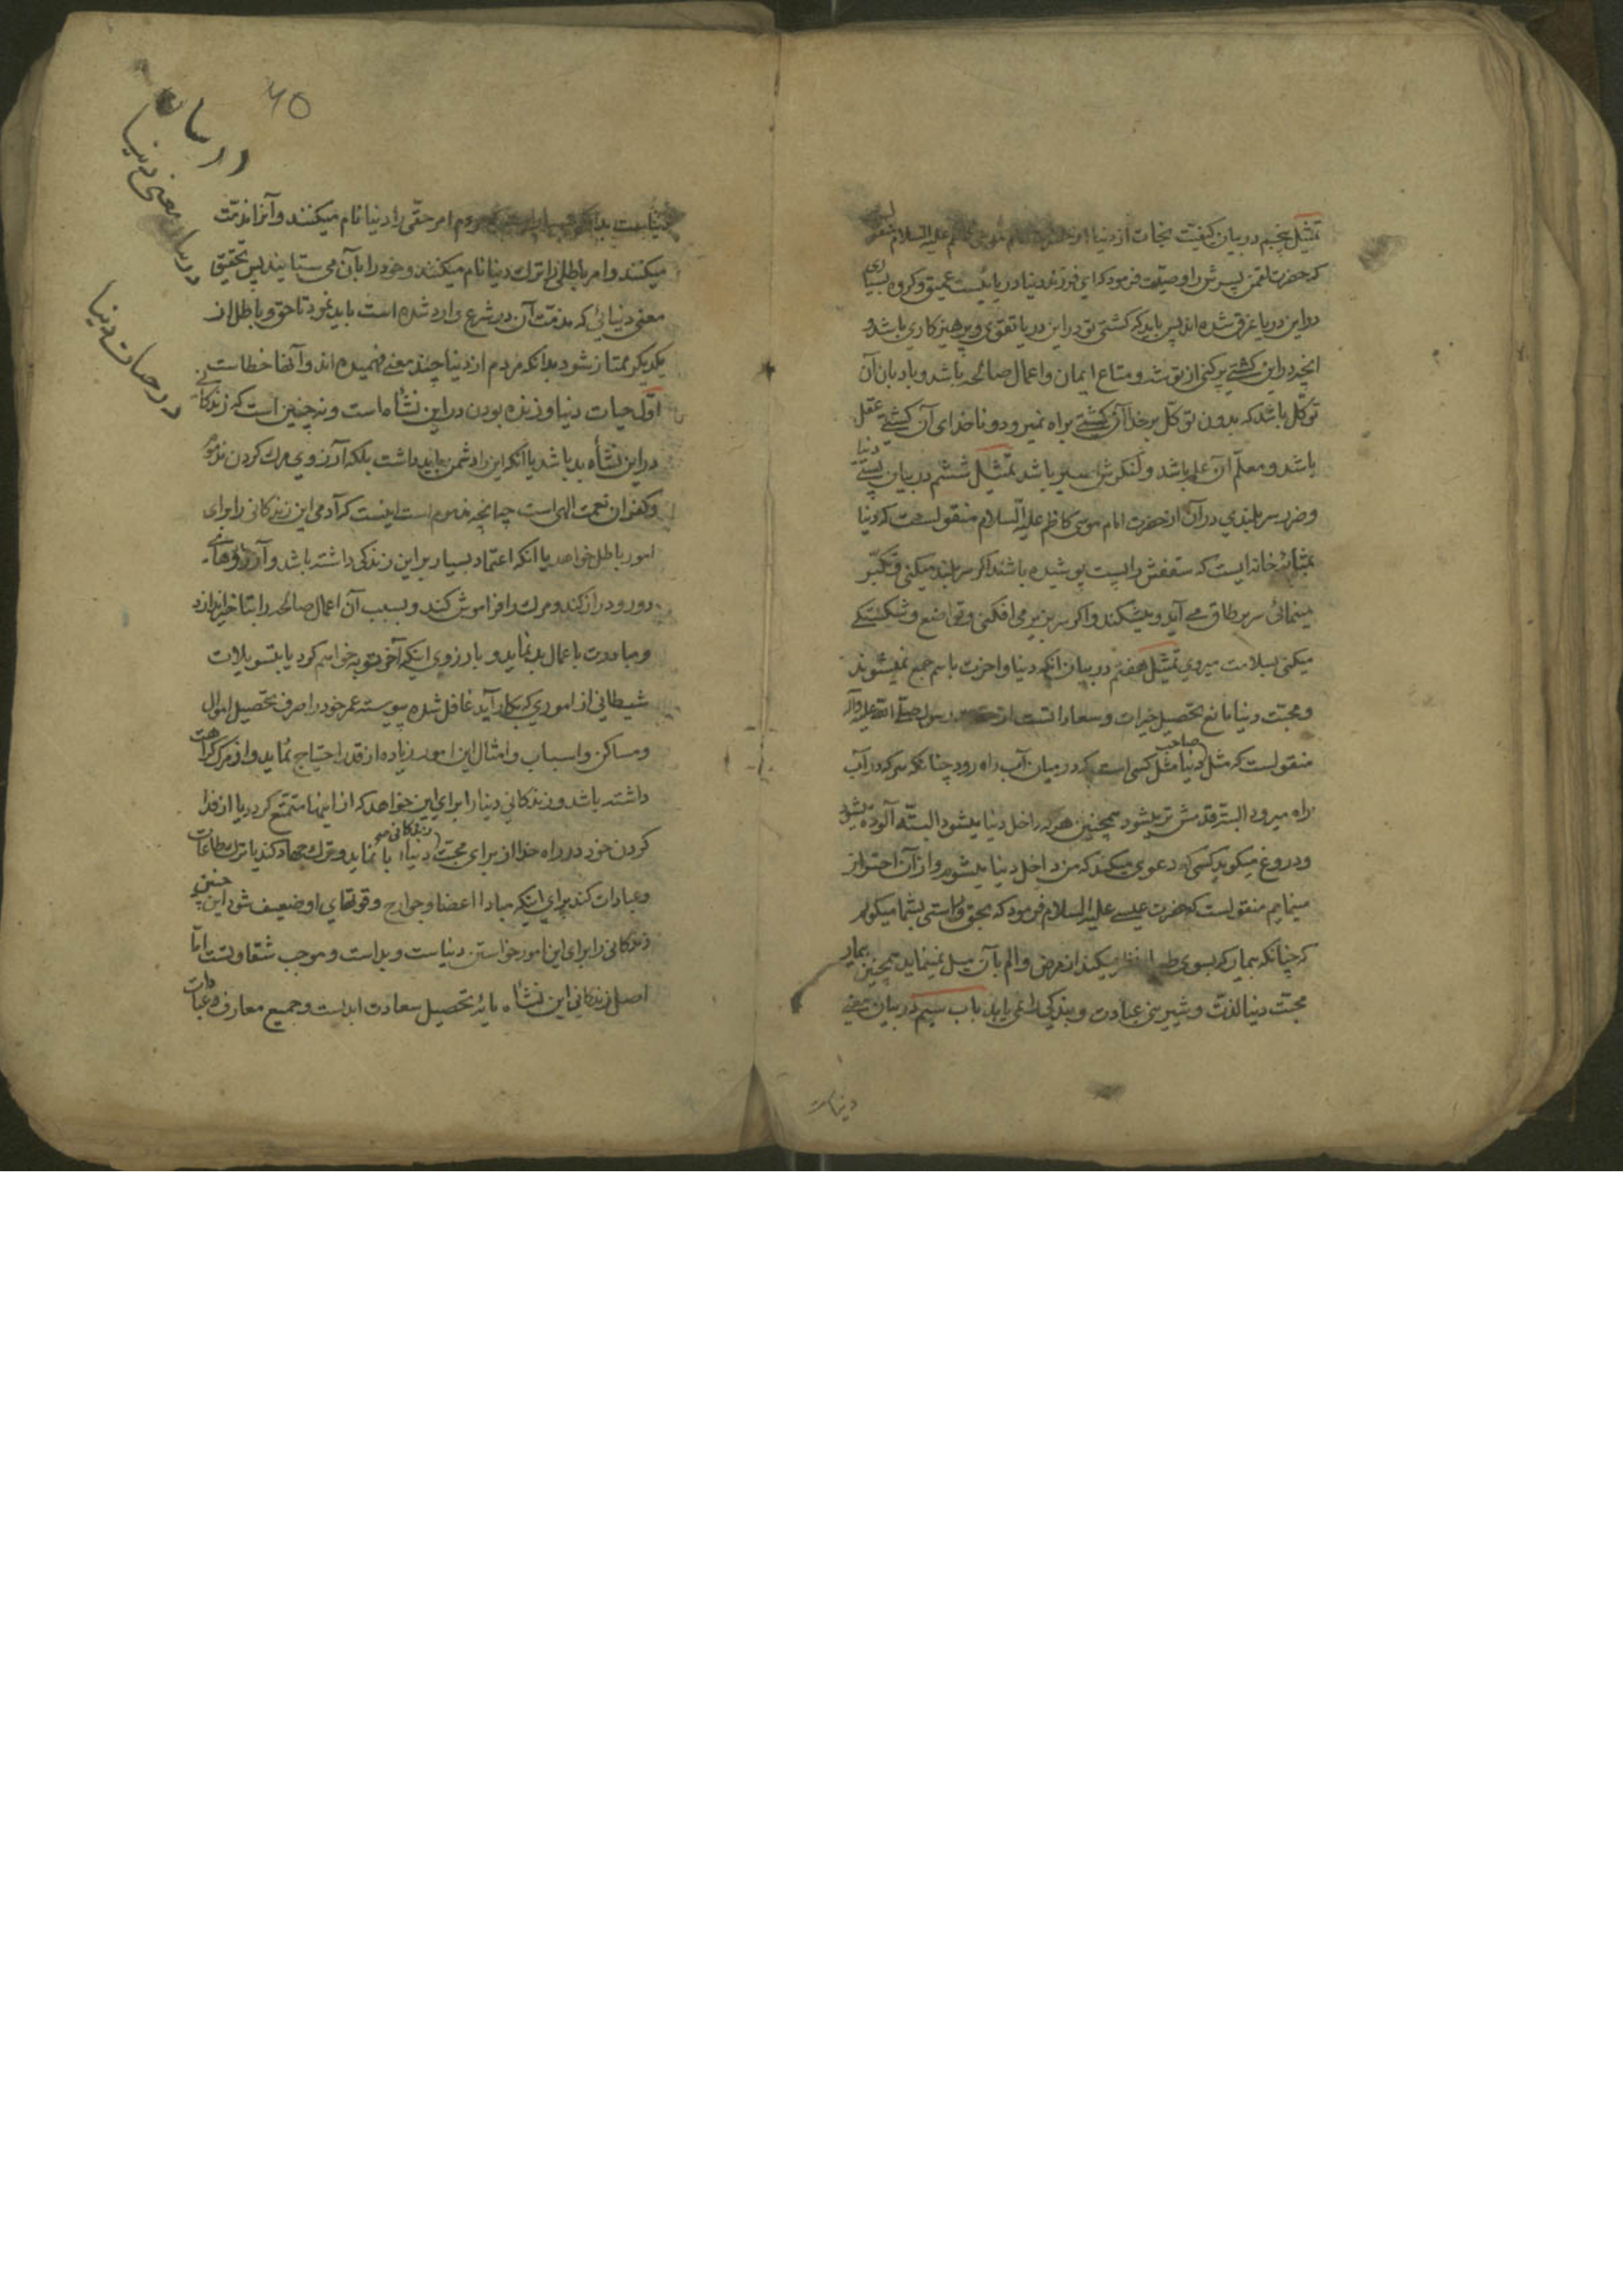 تمثیل پنجم در بیان کیفیت نجات از دنیا از علیه السلام
که حضرت لقمن پسرش را وصیّت فرمود که ای فرزند دنیا دریائیست عمیق و کروه بسیاری
در این دریا غرق شده اند پس باید که کشتی تو در این دریا تقوی و پرهیزکاری باشد و
انچه در این کشتی پر کنی از توشه و متاع ایمان و اعمال صالحه باشد و بادبان آن
توکّل باشد که بدون توکّل بر خدا آن کشتی براه نمیرود و ناخدای آن کشتی عقل
باشد و معلّم آن علم باشد و لنکرش صبر باشد تمثیل ششم در بیان پستی دنیا
و ضرر سر بلندی در آن از حضرت امام موسی کاظم علیه السلام منقولست که دنیا
بمثابه خانه ایست که سقفش را پست پوشیده باشند اکر سر بلند میکنی و تکبّر
مینمائی سر بر طاق می آید و میشکند و اکر سر بزیر می افکنی و تواضع و شکستکی
میکنی بسلامت میروی تمثیل هفتم در بیان انکه دنیا و اخرت با هم جمع نمیشوند
و محبّت دنیا مانع تحصیل خیرات و سعاداتست از حضرت رسول صلّی الله علیه وآله
منقولست که مثل صاحب دنیا مثل کسی است که در میان آب راه رود چنانکه کسی که در آب
راه میرود البته قدمش تر میشود همچنین هر که داخل دنیا میشود البتّه آلوده میشود
و دروغ میکوید کسی که دعوی میکند که من داخل دنیا میشوم و از آن احتراز
مینمایم منقولست که حضرت عیسی علیه السلام فرمود که بحق و راستی بشما میکویم
که چنانکه بیمار که بسوی نظر میکند از مرض و الم بآن میل نمینماید همچنین بیمار
محبّت دنیا لذّت و شیرینی عبادت و بندکی را نمی یابد باب سیم در بیان معنی
دنیاست
40
در بیان معنی دنیا
در حیات دنیا
دنیاست بدانکه مردم امر حقّی را دنیا نام میکنند و آنرا مذمّت
میکنند و امر باطلی را ترک دنیا نام میکنند و خود را بآن می ستایند پس تحقیق
معنی دنیائی که مذمّت آن در شرع وارد شده است باید نمود تا حق و باطل از
یکدیکر ممتاز شود بدانکه مردم از دنیا چند معنی فهمیده اند و آنها خطاست
اوّل حیات دنیا و زنده بودن در این نشأه است و نه چنین است که زندکانی
در این نشأه بد باشد یا آنکه این را دشمن باید داشت بلکه آرزوی مرک کردن مذموم
و کفران نعمت الهی است چنانچه مذموم است اینست که آدمی این زندکانی را برای
امور باطل خواهد یا انکه اعتماد بسیار بر این زندکی داشته باشد و آرزوهای
دور و دراز کند و مرک را فراموش کند و بسبب آن اعمال صالحه را بتاخیر اندازد
و مبادرت باعمال بد نماید و بارزوی اینکه آخر توبه خواهم کرد یا بتسویلات
شیطانی از اموری که بکار آید غافل شده پیوسته عمر خود را صرف تحصیل اموال
و مساکن و اسباب و امثال این امور زیاده از قدر احتیاج نماید و از مرک کراهت
داشته باشد و زندکانی دنیا را برای این خواهد که از اینها متمتّع کردد یا از فدا
کردن خود در راه خدا از برای محبّت زندکانی دنیا ابا نماید و ترک جهاد کند یا ترک طاعات
و عبادات کند برای اینکه مبادا اعضا و جوارح و قوتهای او ضعیف شود این چنین
زندکانی را برای این امور خواستن دنیاست و بد است و موجب شقاوتست امّا
اصل زندکانی این نشأه مایه تحصیل سعادت ابدیست و جمیع معارف و عبادات